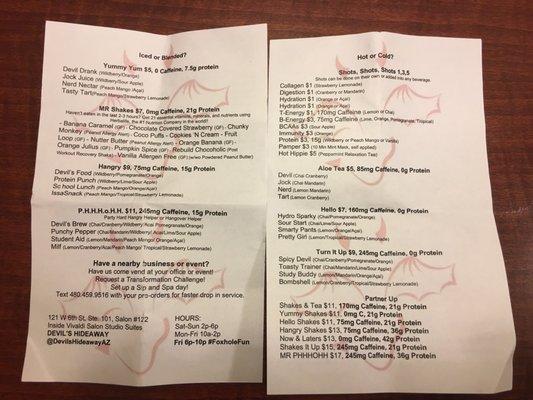 Iced or Blended?
Yummy Yum $5, 0 Caffeine, 7.5g protein
Devil Drank (Wildberry/Orange)
Jock Juice (Wildberry/Sour Apple)
Nerd Nectar (Peach Mango/Orange)
Tasty Tart (Peach Mango/Strawberry Lemonade)
MR Shakes $7, 0mg Caffeine, 21g Protein
Haven't eaten in the last 2-3 hours? Get 21 essential vitamins, minerals, and nutrients using
Herbalife, the #1 Nutrition Company in the world!
- Banana Caramel (GF) - Chocolate Covered Strawberry (GF) - Chunky
Monkey (Peanut Allergy Alert) - Coco Puffs - Cookies 'N Cream - Fruit
Loop (GF) - Nutter Butter (Peanut Allergy Alert) - Orange Banana (GF) -
Orange Julius (GF) - Pumpkin Spice (GF) - Rebuild Chocoholic (Post
Workout Recovery Shake) - Vanilla Allergen Free (GF) (w/wo Powdered Peanut Butter)
Hangry $9, 75mg Caffeine, 15g Protein
Devil's Food (Wildberry/Pomegranate/Orange)
Protein Punch (Wildberry/Lime/Sour Apple)
School Lunch (Peach Mango/Orange/Açai)
IssaSnack (Peach Mango/Tropical/Strawberry Lemonade)
P.H.H.H.o.H.H. $11, 245mg Caffeine, 15g Protein
Party Hard Hangry Helper or Hangover Helper
Devil's Brew (Chai/Cranberry/Wildberry/Pomegranate/Orange)
Punchy Pepper (Chai/Mandarin/Wildberry/Lime/Sour Apple)
Student Aid (Lemon/Mandarin/Peach Mango/Orange/Açai)
Milf (Lemon/Cranberry/Peach Mango/Tropical/Strawberry Lemonade)
Have a nearby business or event?
Have us come vend at your office or event!
Request a Transformation Challenge!
Set up a Sip and Spa day!
Text 480.459.9516 with your pre-orders for faster drop in service.
121 W 6th St, Ste. 101, Salon #122
Inside Vivaldi Salon Studio Suites
DEVIL'S HIDEAWAY
@DevilsHideawayAZ
HOURS:
Sat-Sun 2p-6p
Mon-Fri 10a-2p
Fri 6p-10p #FoxholeFun
Hot or Cold?
Shots, Shots, Shots 1,3,5
Shots can be done on their own or added into any beverage.
Collagen $1 (Strawberry Lemonade)
Digestion $1 (Cranberry or Mandarin)
Hydration $1 (Orange or Açai)
Hydration $1 (Orange or Açai)
T-Energy $1, 170mg Caffeine (Lemon or Chai)
B-Energy $3, 75mg Caffeine (Lime, Orange, Pomegranate, Tropical)
BCAAs $3 (Sour Apple)
Immunity $3 (Orange)
Protein $3, 15g (Wildberry or Peach Mango or Vanilla)
Pamper $3 (10 Min Mint Mask, self applied)
Hot Hippie $5 (Peppermint Relaxation Tea)
Aloe Tea $5, 85mg Caffeine, 0g Protein
Devil (Chai Cranberry)
Jock (Chai Mandarin)
Nerd (Lemon Mandarin)
Tart (Lemon Cranberry)
Hello $7, 160mg Caffeine, 0g Protein
Hydro Sparky (Chai/Pomegranate/Orange)
Sour Start (Chai/Lime/Sour Apple)
Smarty Pants (Lemon/Orange/Açai)
Pretty Girl (Lemon/Tropical/Strawberry Lemonade)
Turn It Up $9, 245mg Caffeine, 0g Protein
Spicy Devil (Chai/Cranberry/Pomegranate/Orange)
Toasty Trainer (Chai/Mandarin/Lime/Sour Apple)
Study Buddy (Lemon/Mandarin/Orange/Açai)
Bombshell (Lemon/Cranberry/Tropical/Strawberry Lemonade)
Partner Up
Shakes & Tea $11, 170mg Caffeine, 21g Protein
Yummy Shakes $11, 0mg C, 21g Protein
Hello Shakes $11, 75mg Caffeine, 21g Protein
Hangry Shakes $13, 75mg Caffeine, 36g Protein
Now & Laters $13, 0mg Caffeine, 42g Protein
Shakes It Up $15, 245mg Caffeine, 21g Protein
MR PHHHOHH $17, 245mg Caffeine, 36g Protein